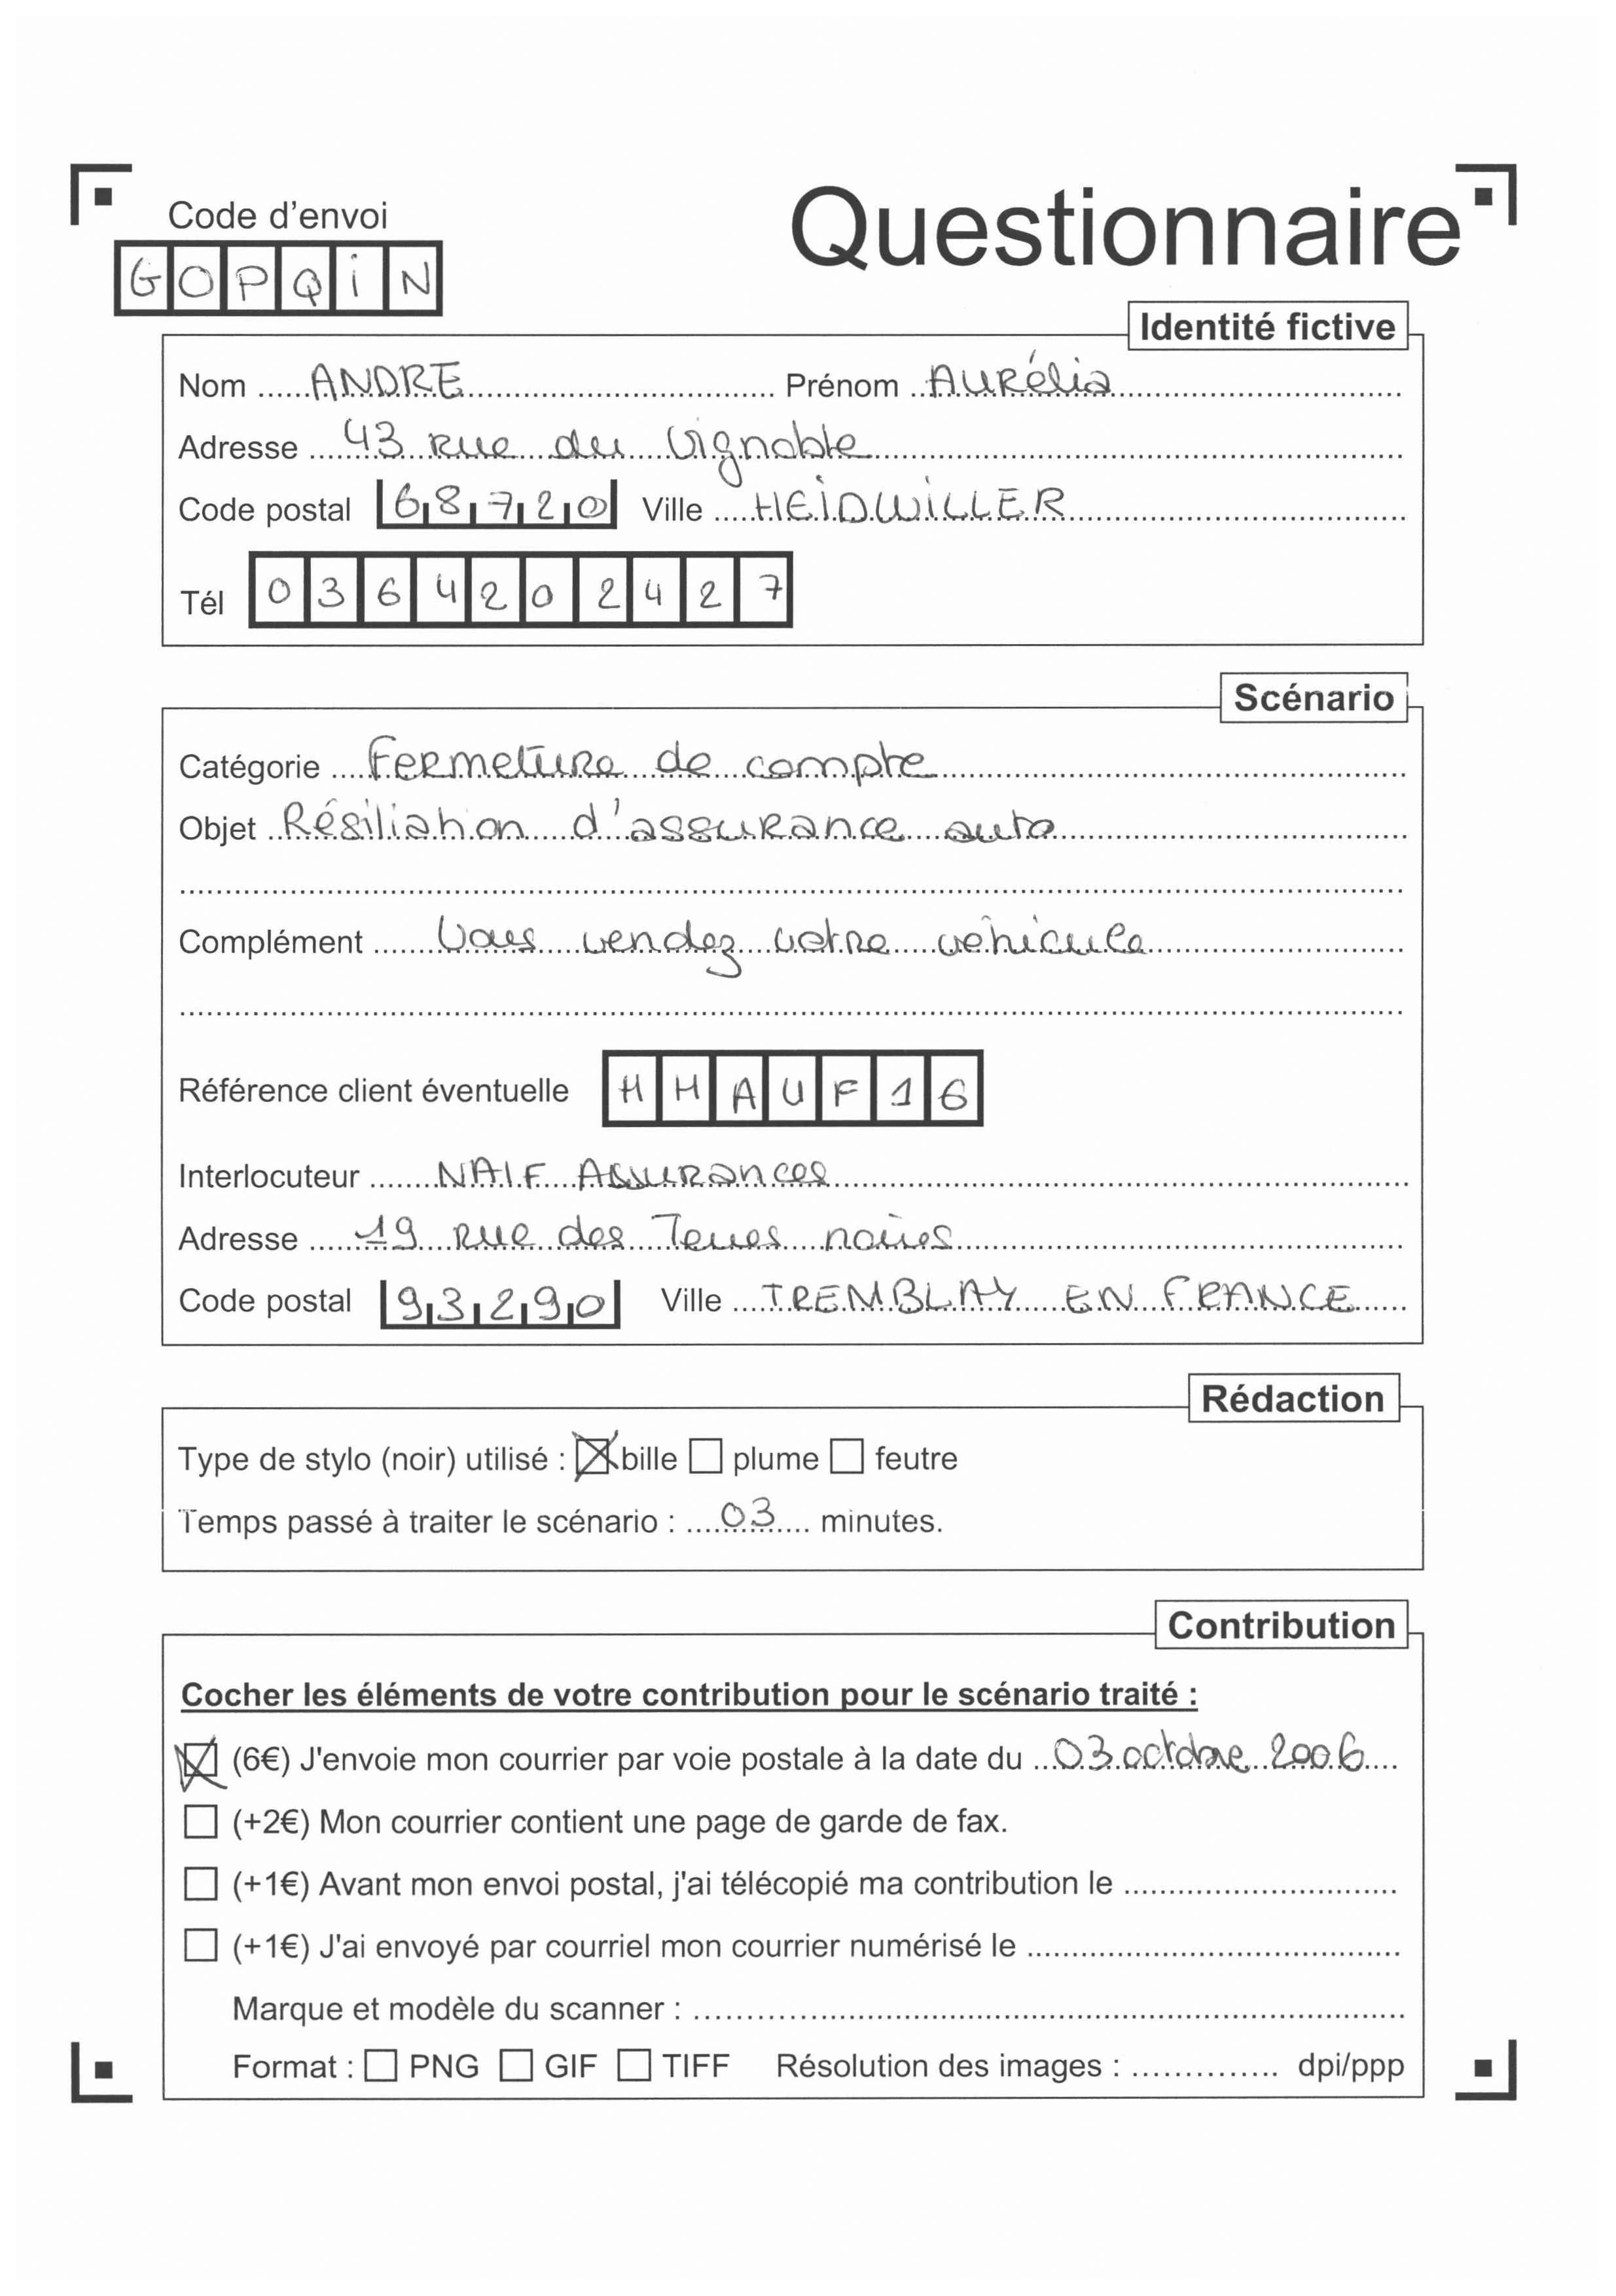 Code d'envoi
Questionnaire
GOPQiN
Identité fictive
Nom ANDRE Prénom AURélia
Adresse 43 Rue du Vignoble
Code postal 68720 Ville HEiDWiLLER
Tél 0364202427
Scénario
Catégorie Fermeture de compte
Objet Résiliation d'assurance auto
Complément Vous vendez votre véhicule
Référence client éventuelle HHAUF16
Interlocuteur NAIF Assurances
Adresse 19 rue des Terres noires
Code postal 93290 Ville TREMBLAY EN FRANCE
Rédaction
Type de stylo (noir) utilisé : bille plume feutre
Temps passé à traiter le scénario : 03 minutes.
Contribution
Cocher les éléments de votre contribution pour le scénario traité :
(6€) J'envoie mon courrier par voie postale à la date du 03 octobre 2006
(+2€) Mon courrier contient une page de garde de fax.
(+1€) Avant mon envoi postal, j'ai télécopié ma contribution le
(+1€) J'ai envoyé par courriel mon courrier numérisé le
Marque et modèle du scanner :
Format : PNG GIF TIFF Résolution des images : dpi/ppp